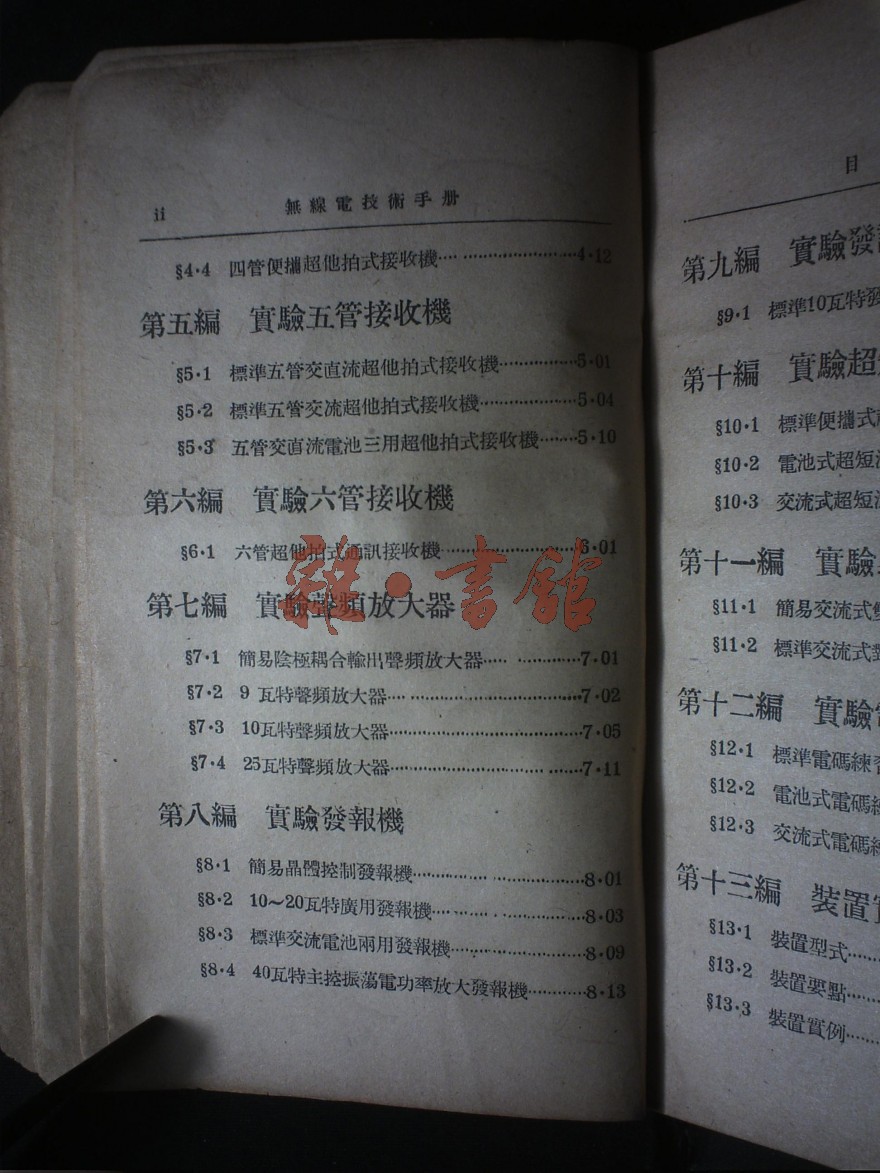 ii 無線電技術手册
§4·4 四管便攜超他拍式接收機………………4·12
第五編 實驗五管接收機
§5·1 標準五管交直流超他拍式接收機…………5·01
§5·2 標準五管交流超他拍式接收機……………5·04
§5·3 五管交直流電池三用超他拍式接收機……5·10
第六編 實驗六管接收機
§6·1 六管超他拍式通訊接收機…………………6·01
第七編 實驗聲頻放大器
§7·1 簡易陰極耦合輸出聲頻放大器……………7·01
§7·2 9 瓦特聲頻放大器…………………………7·02
§7·3 10瓦特聲頻放大器…………………………7·05
§7·4 25瓦特聲頻放大器…………………………7·11
第八編 實驗發報機
§8·1 簡易晶體控制發報機………………………8·01
§8·2 10～20瓦特廣用發報機……………………8·03
§8·3 標準交流電池兩用發報機…………………8·09
§8·4 40瓦特主控振蕩電功率放大發報機………8·13
雜·書館
目
第九編 實驗發
§9·1 標準10瓦特發
第十編 實驗超
§10·1 標準便攜式
§10·2 電池式超短
§10·3 交流式超短
第十一編 實驗
§11·1 簡易交流式
§11·2 標準交流式
第十二編 實驗
§12·1 標準電碼練
§12·2 電池式電碼
§12·3 交流式電碼
第十三編 裝置
§13·1 裝置型式……
§13·2 裝置要點……
§13·3 裝置實例……